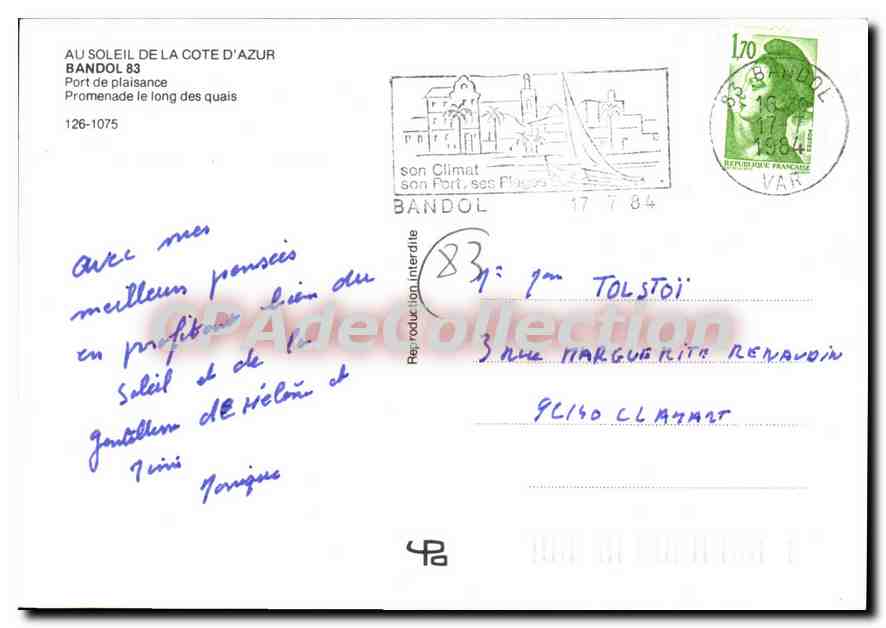 AU SOLEIL DE LA COTE D'AZUR
BANDOL 83
Port de plaisance
Promenade le long des quais
126-1075
son Climat
son Port, ses Plages
BANDOL 17 7 84
1,70
REPUBLIQUE FRANÇAISE
83 BANDOL
16
17 7
1984
VAR
Reproduction interdite
avec mes
meilleures pensées
en profitant bien du
Soleil et de la
gentillesse de Hélène et
Mimi
Monique
83
TOLSTOÏ
3 RUE MARGUERITE RENAUDIN
92140 CLAMART
CPAdeCollection